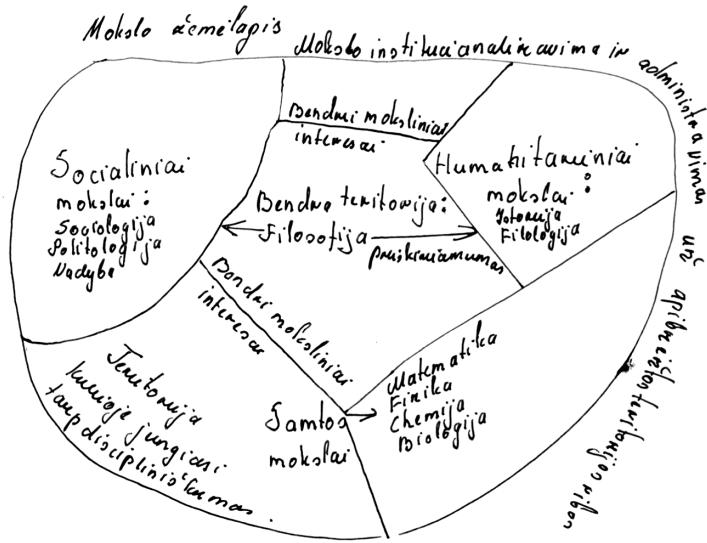 Mokslo žemėlapis
Mokslo institucionalizavimas ir administravimas už apibrėžtos teritorijos ribos
Bendri moksliniai
interesai
Socialiniai
mokslai:
Sociologija
Politologija
Vadyba
Humanitariniai
mokslai:
Istorija
Filologija
Bendra teritorija:
Filosofija
priskiriamumas
Bendri moksliniai
interesai
Teritorija
kurioje jungiasi
tarpdisipliniškumas.
Gamtos
mokslai
Matematika
Fizika
Chemija
Biologija